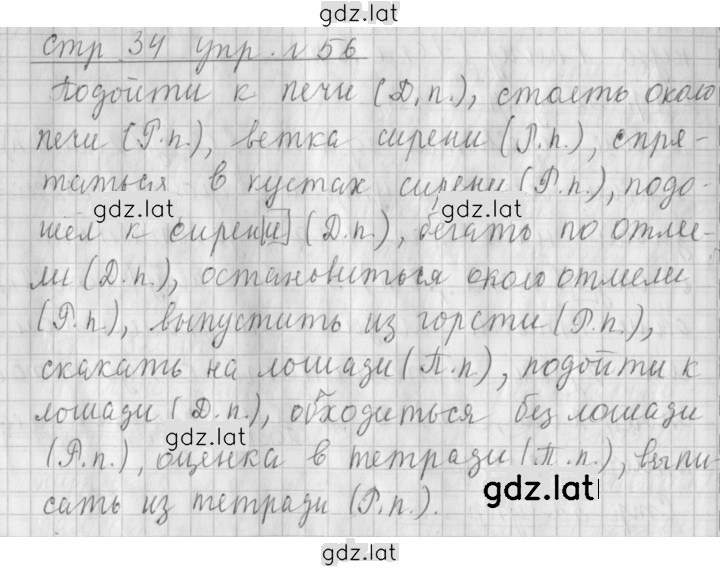 gdz.lat
стр 34 упр. №56
Подойти к печи (Д.п.), стоять около
печи (Р.п.), ветка сирени (Р.п.), спря-
таться в кустах сирени (Р.п.), подо-
gdz.lat
шёл к сирени (Д.п.), бегать по отме-
ли (Д.п.), остановиться около отмели
(Р.п.), выпустить из горсти (Р.п.),
скакать на лошади (П.п.), подойти к
лошади (Д.п.), обходиться без лошади
gdz.lat
(Р.п.), оценка в тетради (П.п.), выпи-
сать из тетради (Р.п.).
gdz.lat
gdz.lat